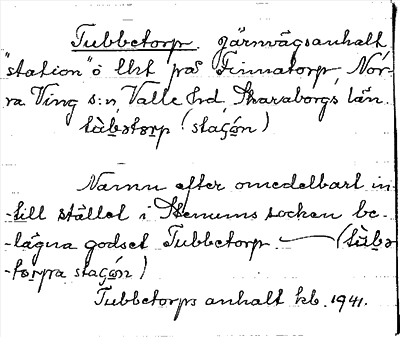 Tubbetorp järnvägsanhalt,
"station" ö lht på Finnatorp, Nor-
ra Ving s:n, Valle hrd, Skaraborgs län.
tùbətɒrp (staʃón)
Namn efter omedelbart in-
-till stället i Stenums socken be-
-lägna godset Tubbetorp — (tùbə
-tɒrpa staʃón)
Tubbetorps anhalt kb. 1941.